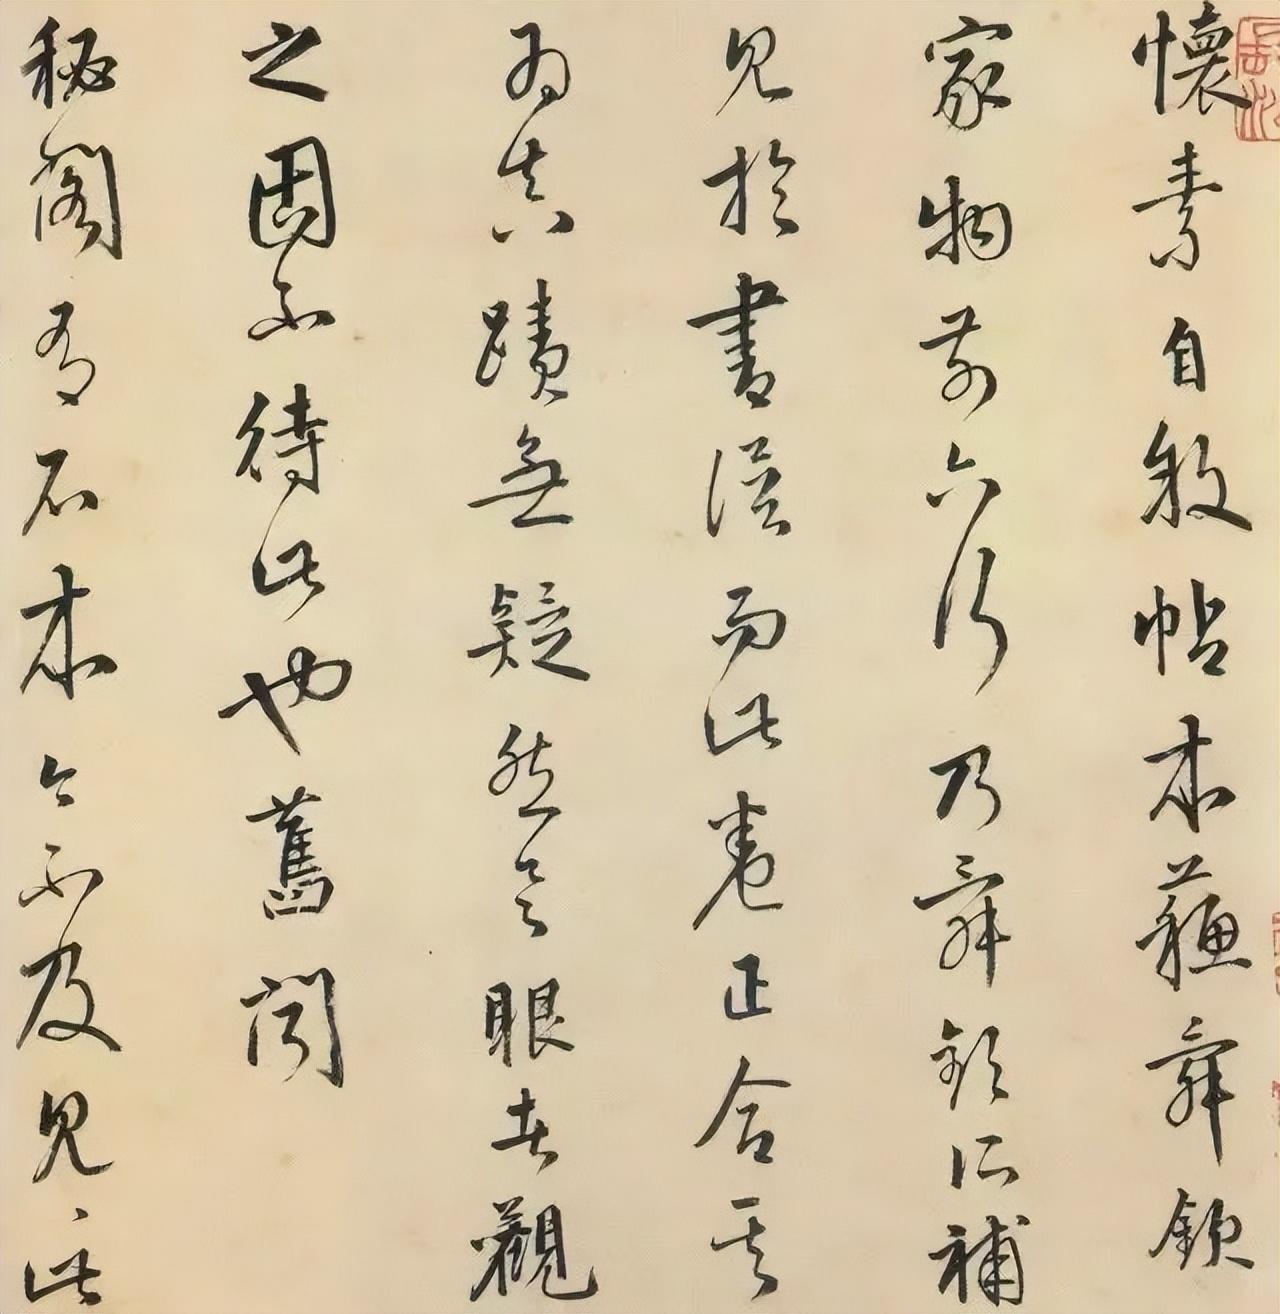 懷素自敘帖本蘇舜欽
家物前六行乃舜欽所補
見於書譜而此卷正合其
為真蹟無疑然具眼者觀
之固不待此也舊聞
秘閣有石本今不及見此